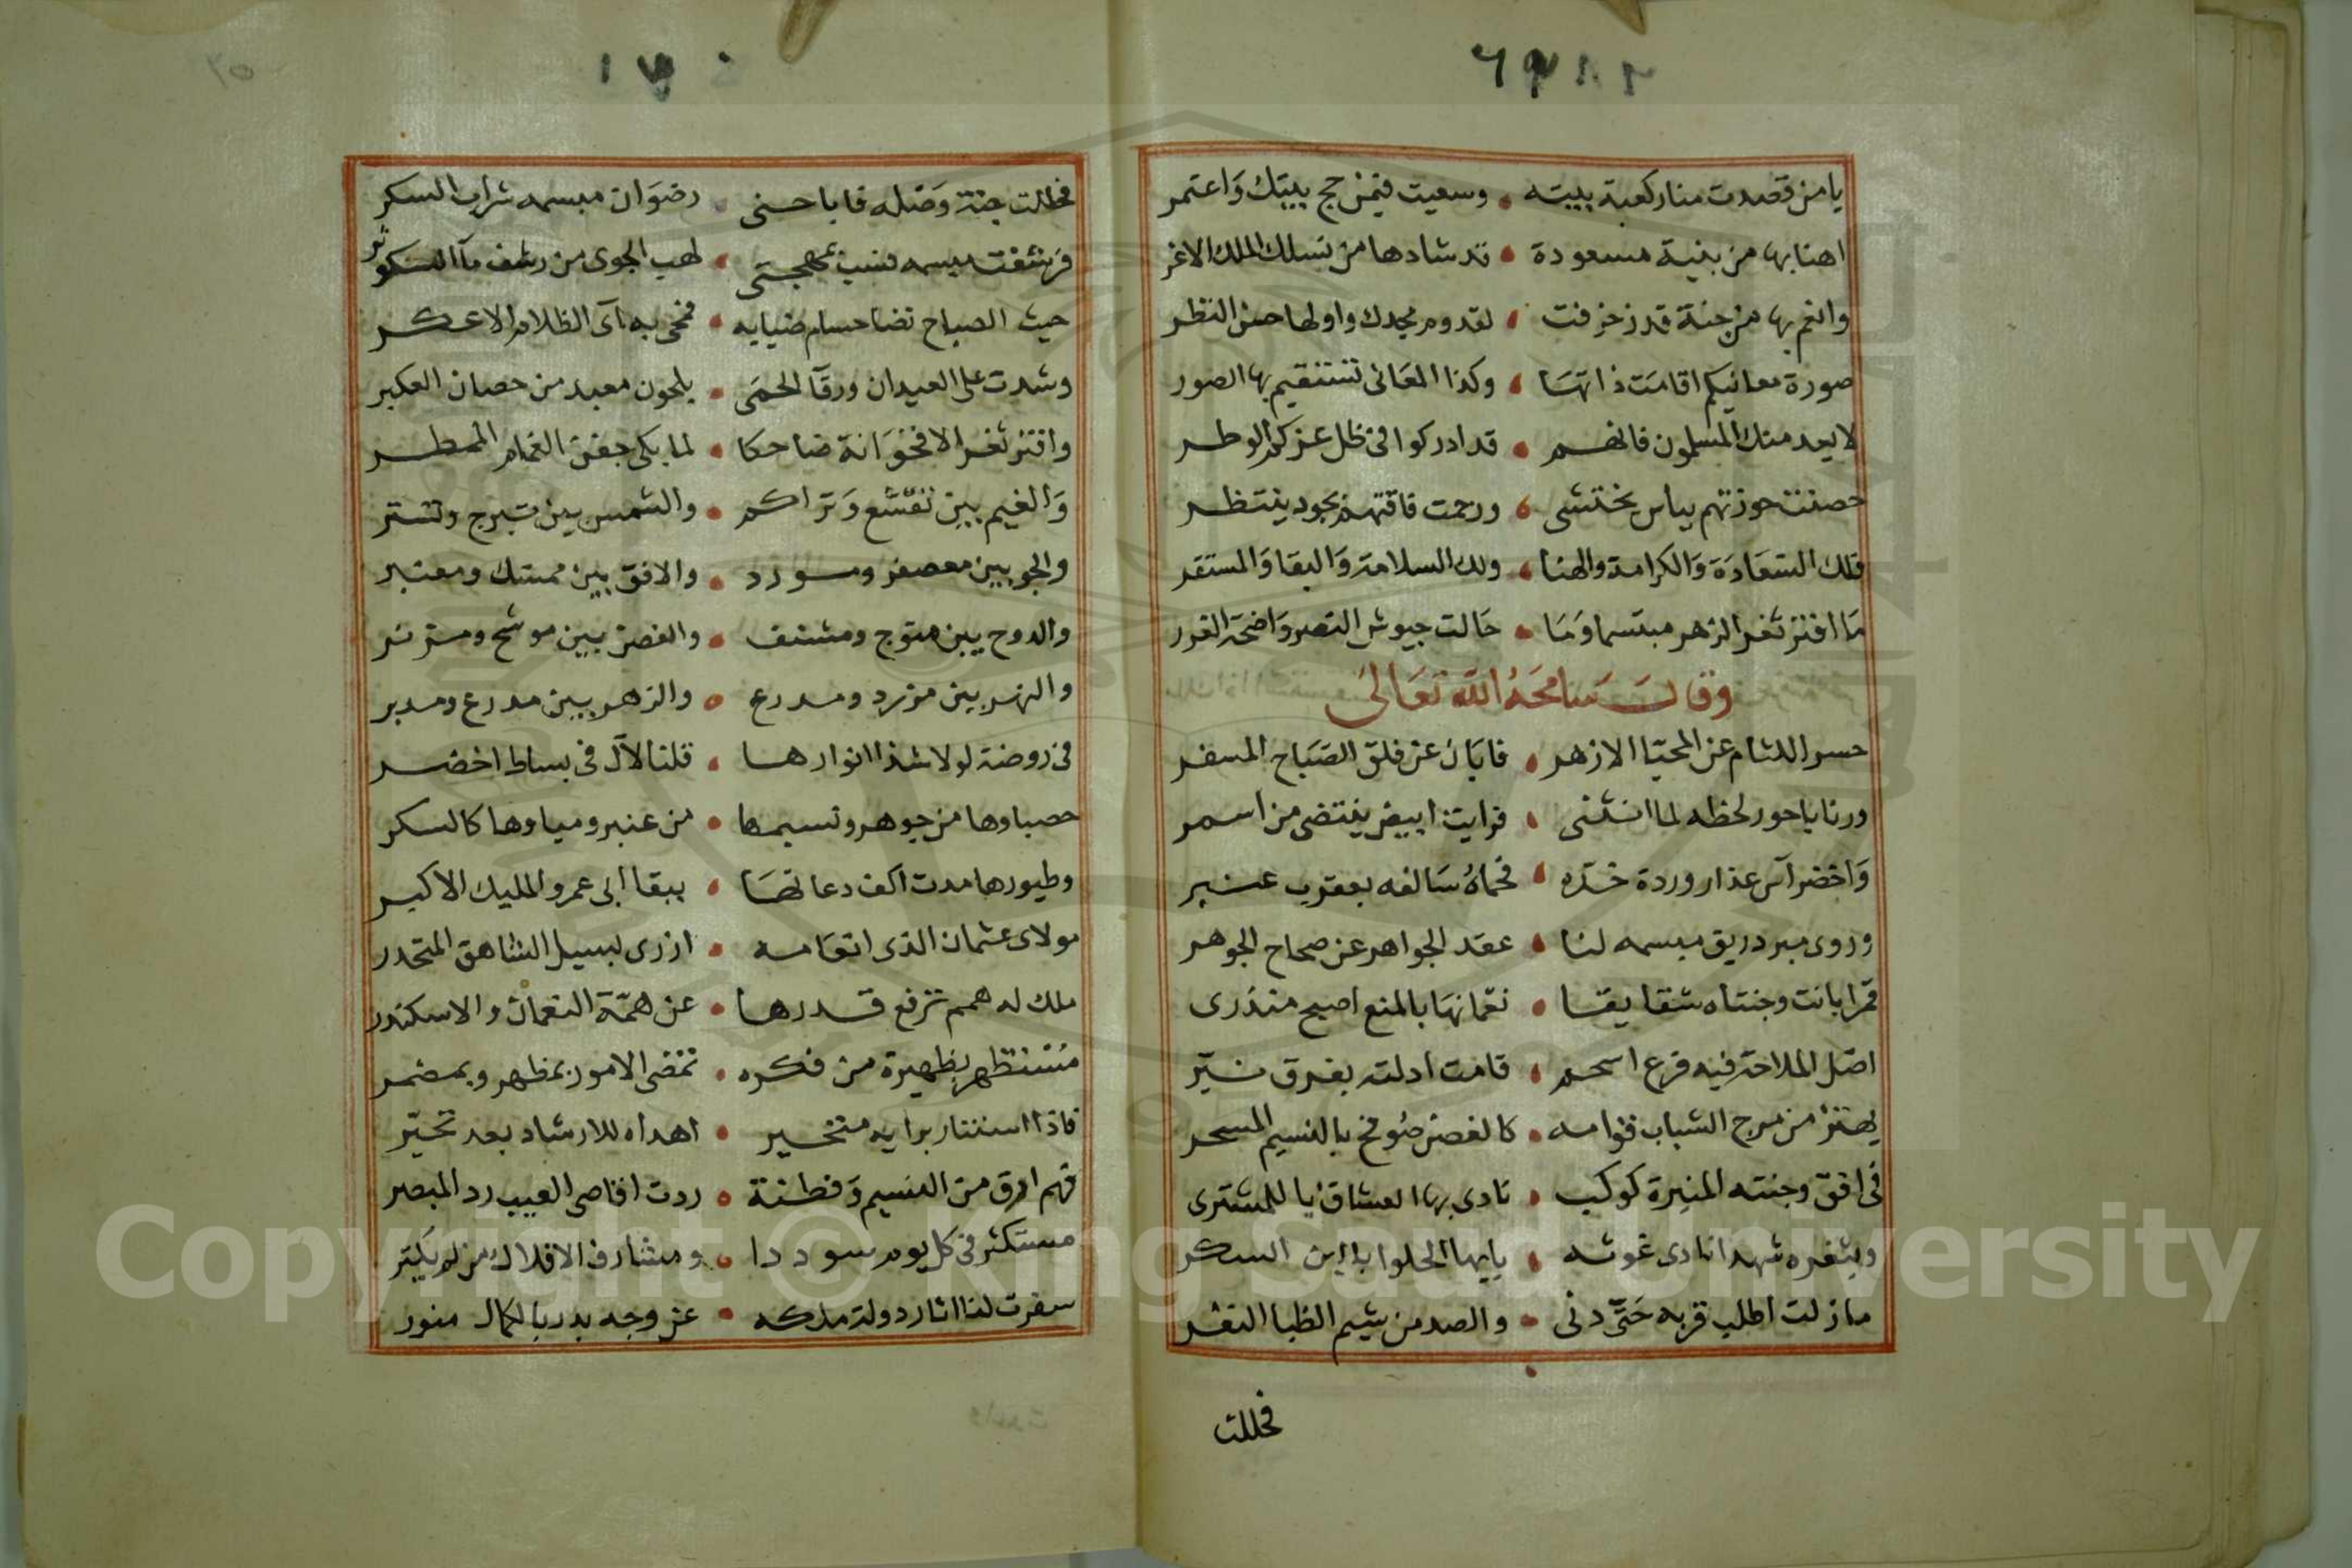 يا من قصدت منار كعبة بيته • وسعيت فيمن حج بيتك واعتمر
اهنا بها من بنية مسعودة • قد شادها من نسلك الملك الاغر
وانعم بها من جنة قد زخرفت • لقدوم مجدك واولها حسن النظر
صورة معانيكم اقامت ذاتها • وكذا المعانى تستقيم بها الصور
لا يعدمنك المسلمون فانهم • قد ادركوا فى ظل عزكم الوطر
حصنت حوزتهم بباس يختشى • ورحمت فاقتهم بجود ينتظر
فلك السعادة والكرامة والهنا • ولك السلامة والبقا والمستقر
ما افتر ثغر الزهر مبتسما وما • حالت جيوش النصر واضحة الغرر
وقال سامحه الله تعالى
حسر اللثام عن المحيا الازهر • فابان عن فلق الصباح المسفر
ورنا باحور لحظه لما انثنى • فرايت ابيض ينتضى من اسمر
واخضر آس عذار وردة خده • فحماه سالفه بعقرب عنبر
وروى مبرد ريق مبسمه لنا • عقد الجواهر عن صحاح الجوهر
قمرا بانت وجنتاه شقايقا • نعمانها بالمنع اصبح منذرى
اصل الملاحة فيه فرع اسحم • قامت ادلته بفرق نير
يهتز من مرح الشباب قوامه • كالغصن صوفح بالنسيم المسحر
فى افق وجنته المنيرة كوكب • نادى بها العشاق يا للمشترى
وبثغره شهد انادى غوثه • يايها الحلوا يا ابن السكر
ما زلت اطلب قربه حتى دنى • والصد من شيم الظبا النفر
فحللت
١٧٠
فحللت جنة وصله فاباحنى • رضوان مبسمه شراب السكر
فرشفت مبسمه فشب بمهجتى • لهب الجوى من رشف ماء الكوثر
حيث الصباح نضا حسام ضيايه • فمحى به آى الظلام الاعكر
وشدت على العيدان ورقا الحمى • بلحون معبد من حصان العكبر
وافتر ثغر الاقحوانة ضاحكا • لما بكى جفن الغمام الممطر
والغيم بين تقشع وتراكم • والشمس بين تبرج وتستر
والجو بين معصفر ومورد • والافق بين ممسك ومعنبر
والدوح بين متوج ومشنف • والغصن بين موشح ومزنر
والنهر بين مزرد ومدرع • والزهر بين مدرع ومدبر
فى روضة لولا شذا انوارها • قلنا لآل فى بساط اخضر
حصباوها من جوهر ونسيمها • من عنبر ومياوها كالسكر
وطيورها مدت اكف دعائها • ببقا ابى عمرو المليك الاكبر
مولاى عثمان الذى انعامه • ازرى لبسيل الشاهق المتحدر
ملك له همم ترفع قدرها • عن همة النعمان والاسكندر
مستظهر بظهيرة من فكره • تمضى الامور بمظهر وبمضمر
فاذا استنار برايه متحير • اهداه للارشاد بعد تحير
فهم ارق من النسيم وفطنة • ردت اقاصى الغيب رد المبصر
مستكثر فى كل يوم سوددا • ومشارف الافلاك من لم يكثر
سفرت لنا اثار دولة ملكه • عن وجه بدر بالكمال منور
Copyright © King Saud University